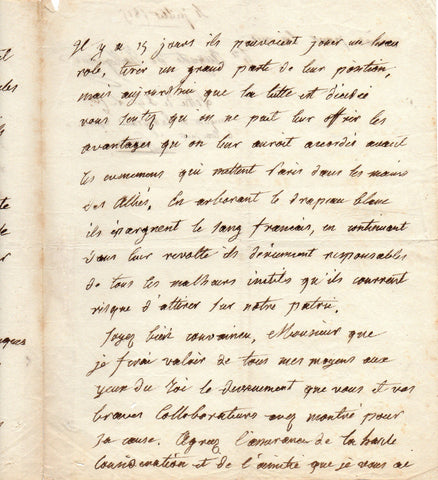 Il y a 15 jours ils pouvoient jouer un beau
role, tirer un grand parti de leur position,
mais aujourdhui que la lutte est décidée
vous sentez qu on ne peut leur offrir les
avantages qu on leur auroit accordés avant
les evenemens qui mettent Paris dans les mains
des Alliés. En arborant le drapeau blanc
ils épargnent le sang francais, en continuant
dans leur revolte ils deviennent responsables
de tous les malheurs inutiles qu'ils courrent
risque d'attirer sur notre patrie.
Soyez bien convaincu, Monsieur que
je ferai valoir de tous mes moyens aux
yeux du Roi le devouement que vous et vos
braves Collaborateurs avez montré pour
sa cause. Agreez l'assurance de la haute
consideration et de l'amitié que je vous ai